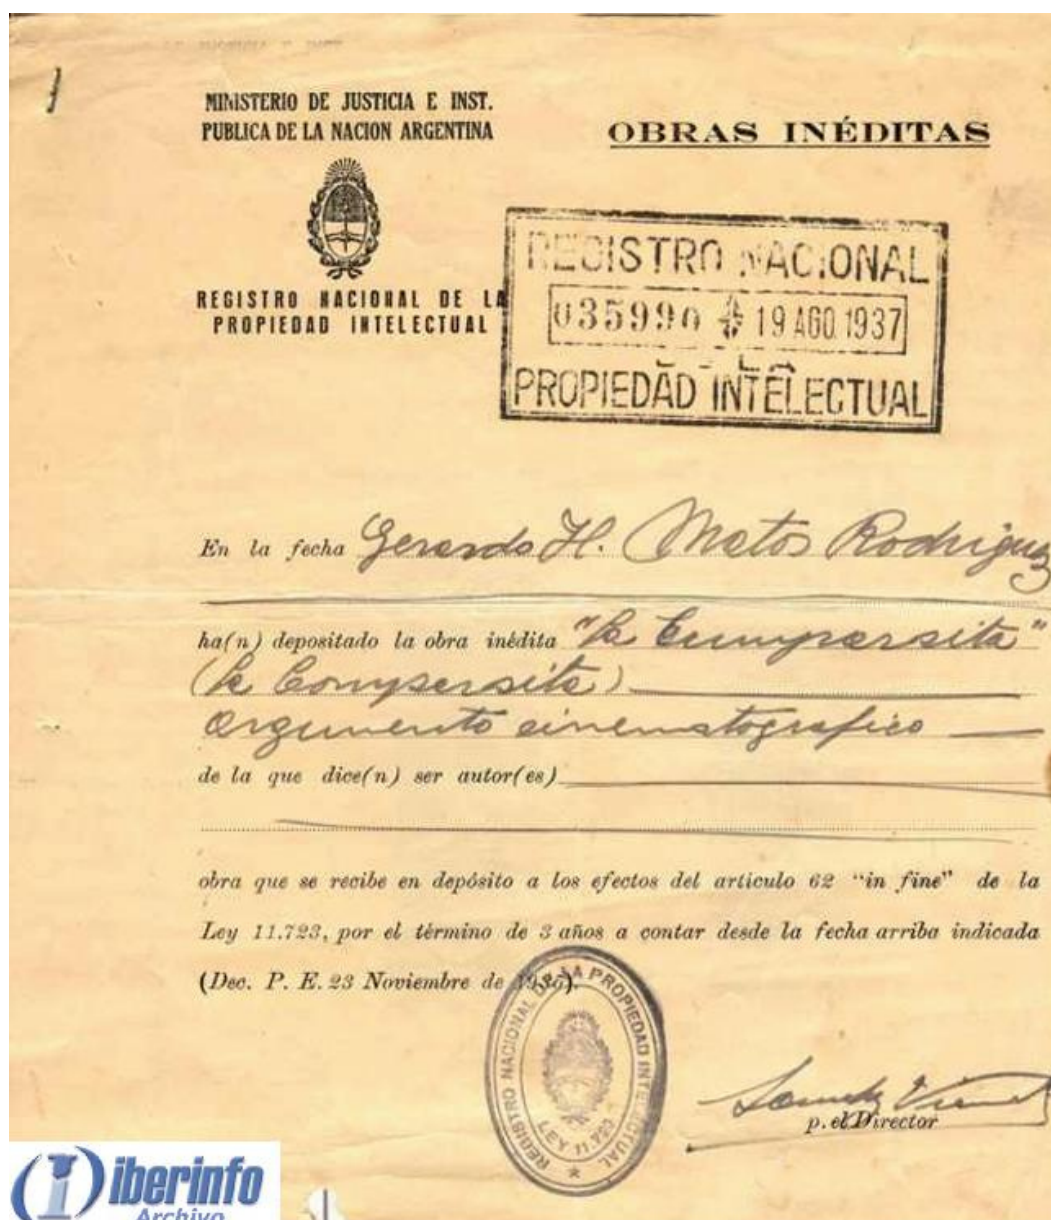 MINISTERIO DE JUSTICIA E INST.
PUBLICA DE LA NACION ARGENTINA
OBRAS INÉDITAS
REGISTRO NACIONAL DE LA
PROPIEDAD INTELECTUAL
REGISTRO NACIONAL
035990 19 AGO 1937
DE LA
PROPIEDAD INTELECTUAL
En la fecha Gerardo H. Matos Rodriguez
ha(n) depositado la obra inédita "La Cumparsita"
(La Comparsita)
argumento cinematografico
de la que dice(n) ser autor(es)
obra que se recibe en depósito a los efectos del artículo 62 "in fine" de la
Ley 11.723, por el término de 3 años a contar desde la fecha arriba indicada
(Dec. P. E. 23 Noviembre de 1936).
REGISTRO NACIONAL DE LA PROPIEDAD INTELECTUAL
LEY 11.723
p. el Director
iberinfo
Archivo